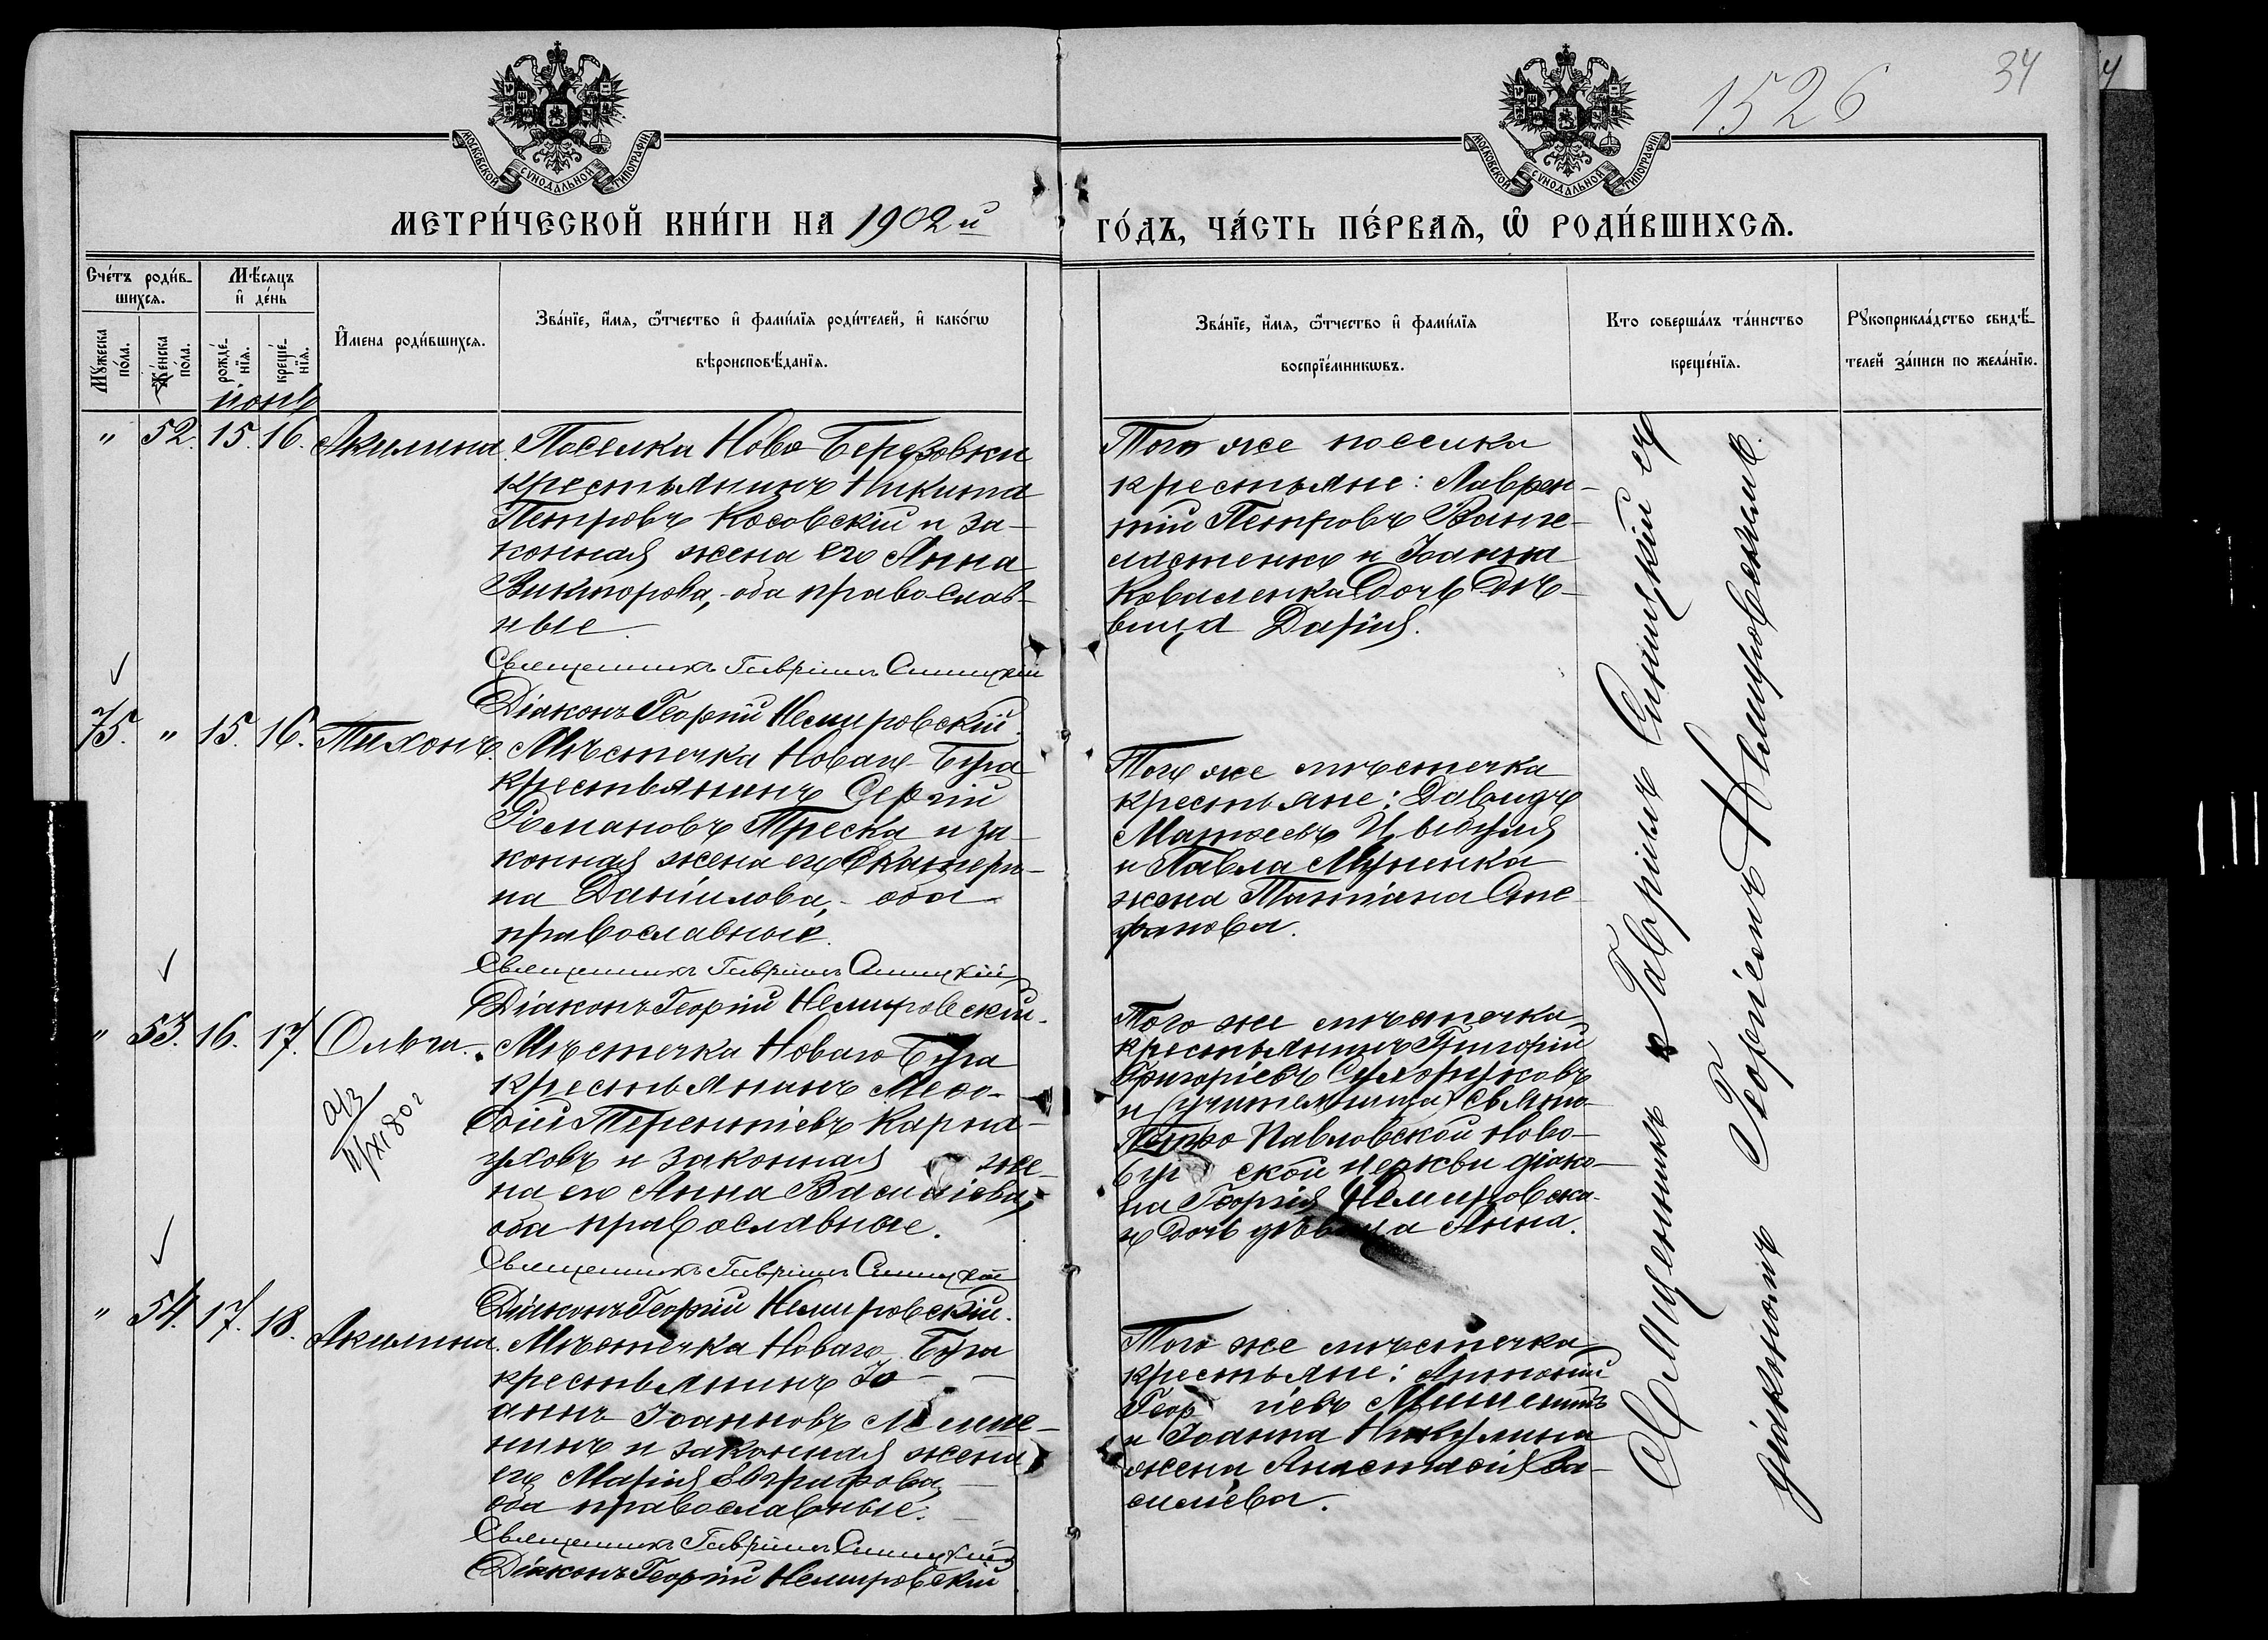 1526
34
МОСКОВСКОЙ СѴНОДАЛЬНОЙ ТИПОГРАФІИ
МОСКОВСКОЙ СѴНОДАЛЬНОЙ ТИПОГРАФІИ
МЕТРИ́ЧЕСКОЙ КНИ́ГИ НА 1902й
ГО́ДЪ, ЧА́СТЬ ПЕ́РВАѦ, Ѿ РОДИ́ВШИХСѦ.
Сче́тъ роди́в-
шихсѧ.
Мꙋжеска по́ла.
Же́нска по́ла.
Мѣ́сяцъ
и҆ де́нь
рожде́-
нїѧ.
креще́-
нїѧ.
И҆мена роди́вшихсѧ.
Зва́нїе, и҆́мѧ, ѻ҆́тчество и҆ фами́лїѧ роди́телей, и҆ како́гѡ
вѣроисповѣ́данїѧ.
Зва́нїе, и҆́мѧ, ѻ҆́тчество и҆ фами́лїѧ
воспрїе́мникѡвъ.
Кто соверша́лъ та́инство
креще́нїѧ.
Рꙋкоприкла́дство свидѣ́-
телей за́писи по жела́нїю.
іюнь
" 52. 15. 16. Акилина.
Поселка Ново-Березовки
крестьянинъ Никита
Петровъ Косовскій и за-
конная жена его Анна
Викторова, оба православ-
ные.
Священникъ Гавріилъ Синицкій
Діаконъ Георгій Немировскій.
Того же поселка
крестьяне: Лаврен-
тій Петровъ
и Іоанна
Коваленка дочь дѣ-
вица Дарія.
75. " 15. 16. Тихонъ.
Мѣстечка Новаго Буга
крестьянинъ Сергій
Романовъ Треска и за-
конная жена его Екатери-
на Даніилова, оба
православные.
Священникъ Гавріилъ Синицкій
Діаконъ Георгій Немировскій.
Того же мѣстечка
крестьяне: Давидъ
Матѳеевъ Цыбуля
и Павла
жена Татіана Сте-
фанова.
" 53. 16. 17. Ольга.
Мѣстечка Новаго Буга
крестьянинъ Меѳо-
дій Терентіевъ Карна-
уховъ и законная же-
на его Анна Василіева,
оба православные.
Священникъ Гавріилъ Синицкій
Діаконъ Георгій Немировскій.
Того же мѣстечка
крестьянинъ Григорій
Григоріевъ
и учительница Свято-
Петро Павловской Ново-
бугской церкви діако-
на Георгія Немировска-
го дочь дѣвица Анна.
" 54. 17. 18. Акилина.
Мѣстечка Новаго Буга
крестьянинъ Іо-
аннъ Іоанновъ
и законная жена
его Марія
оба православные.
Священникъ Гавріилъ Синицкій
Діаконъ Георгій Немировскій
Того же мѣстечка
крестьяне: Антоній
Георгіевъ
и Іоанна Никулина
жена Анастасія Ва-
силіева.
Священникъ Гавріилъ Синицкій съ
діакономъ Георгіемъ Немировскимъ.